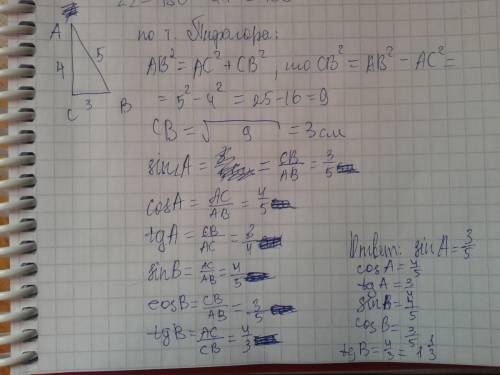 A
4
5
C
3
B
по т. Пифагора:
AB² = AC² + CB², то CB² = AB² - AC² =
= 5² - 4² = 25 - 16 = 9
CB = √9 = 3 см
sin A = = CB/AB = 3/5
cos A = AC/AB = 4/5
tg A = CB/AC = 3/4
sin B = AC/AB = 4/5
cos B = CB/AB = 3/5
tg B = AC/CB = 4/3
Ответ: sin A = 3/5
cos A = 4/5
tg A = 3/4
sin B = 4/5
cos B = 3/5
tg B = 4/3 = 1 1/3